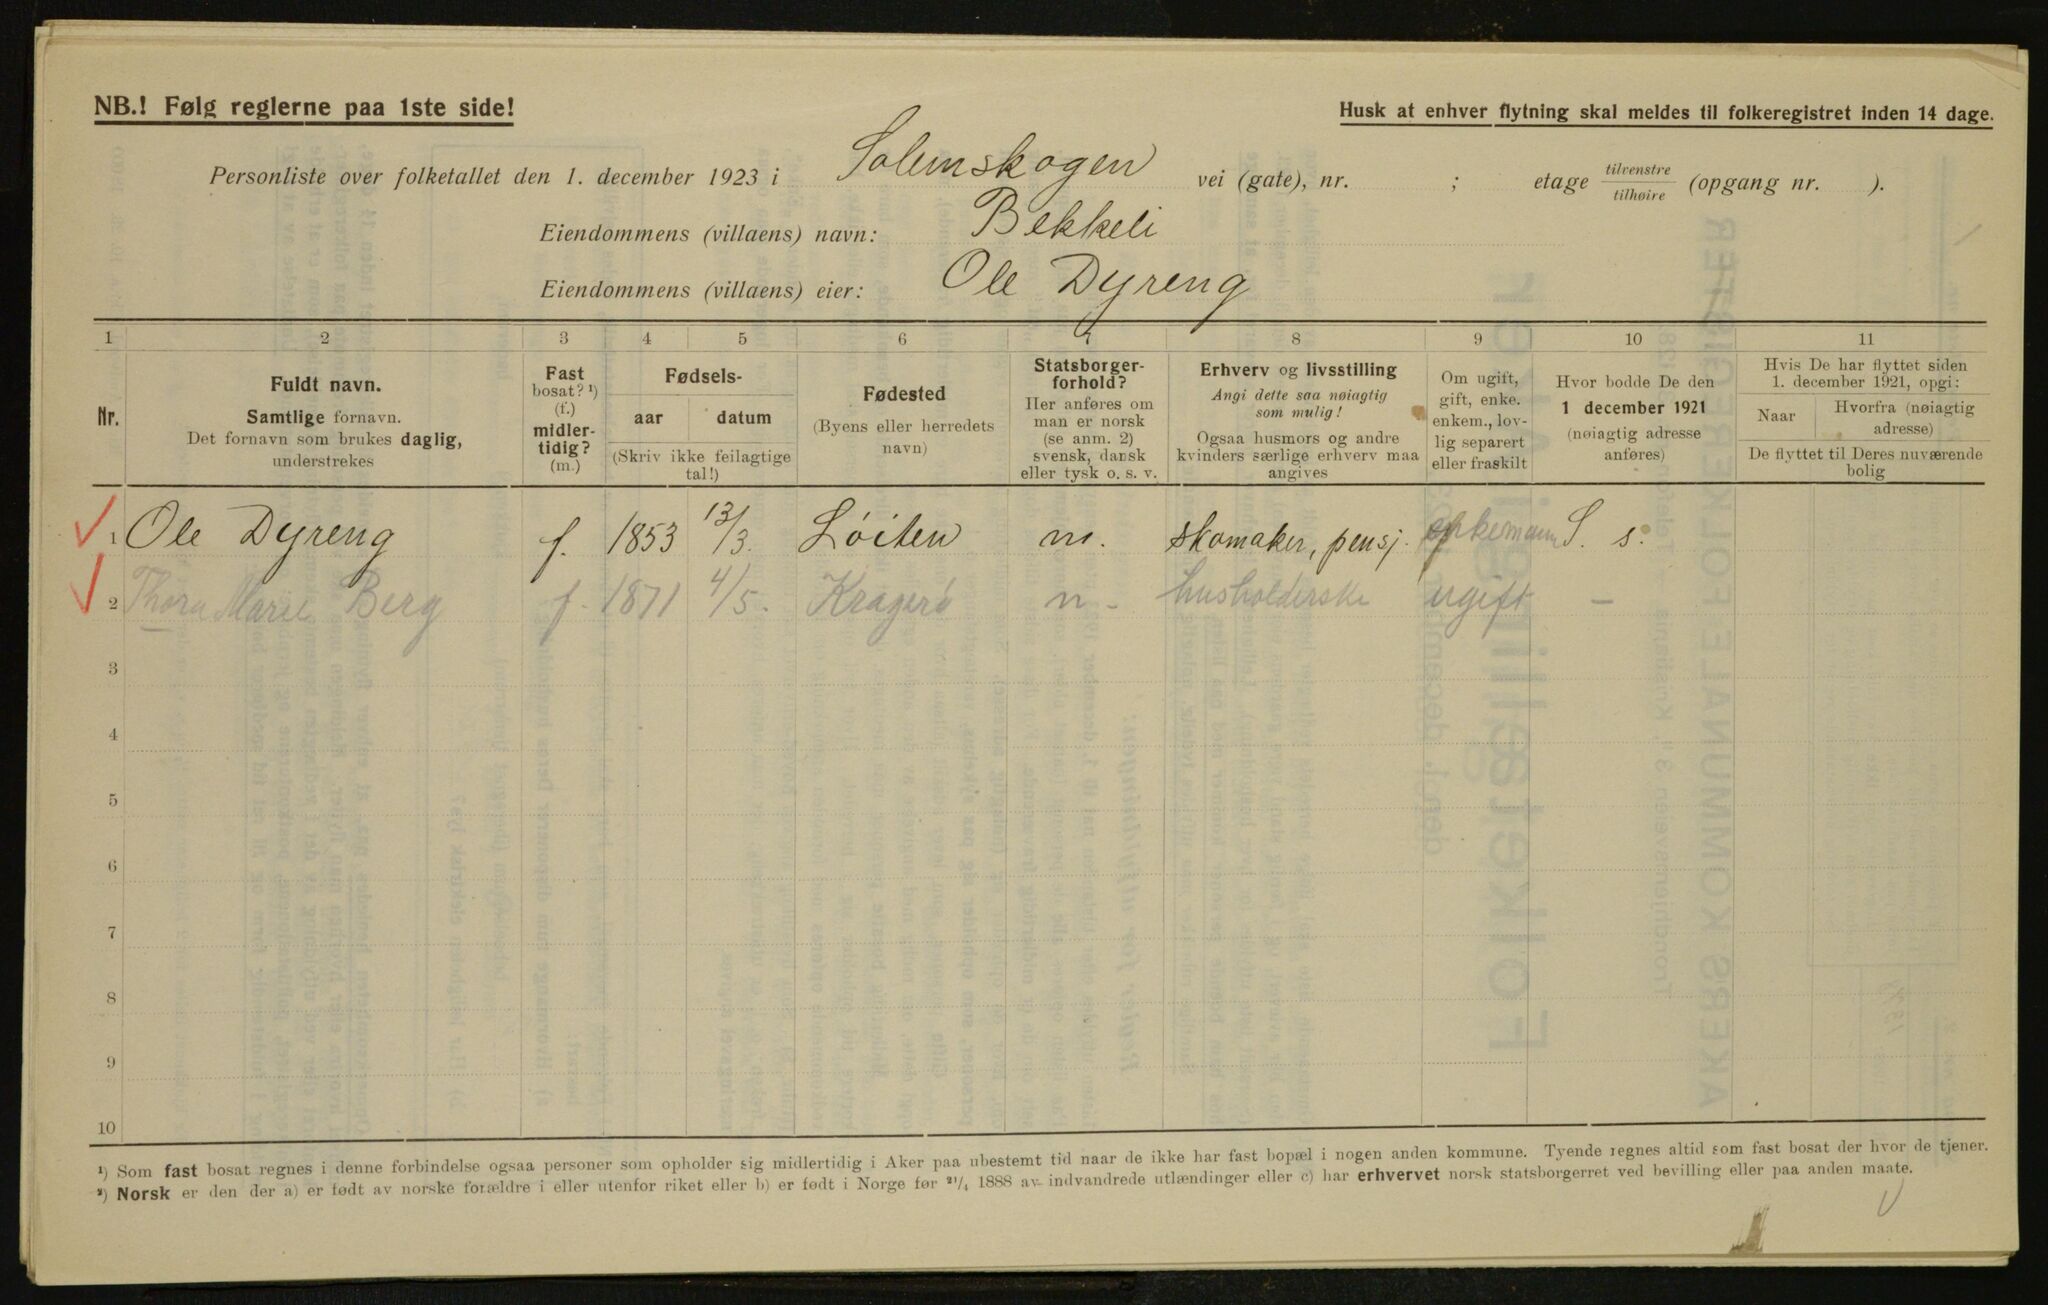 NB.! Følg reglerne paa 1ste side!
Husk at enhver flytning skal meldes til folkeregistret inden 14 dage.
Personliste over folketallet den 1. december 1923 i Solemskogen vei (gate), nr. ; etage tilvenstre/tilhøire (opgang nr. ).
Eiendommens (villaens) navn: Bekkeli
Eiendommens (villaens) eier: Ole Dyreng
1 2 3 4 5 6 7 8 9 10 11
Nr.
Fuldt navn.
Samtlige fornavn.
Det fornavn som brukes daglig,
understrekes
Fast
bosat? ¹)
(f.)
midler-
tidig?
(m.)
Fødsels-
aar datum
(Skriv ikke feilagtige
tal!)
Fødested
(Byens eller herredets
navn)
Statsborger-
forhold?
Her anføres om
man er norsk
(se anm. 2)
svensk, dansk
eller tysk o. s. v.
Erhverv og livsstilling
Angi dette saa nøiagtig
som mulig!
Ogsaa husmors og andre
kvinders særlige erhverv maa
angives
Om ugift,
gift, enke.
enkem., lov-
lig separert
eller fraskilt
Hvor bodde De den
1 december 1921
(nøiagtig adresse
anføres)
Hvis De har flyttet siden
1. december 1921, opgi:
Naar Hvorfra (nøiagtig
adresse)
De flyttet til Deres nuværende
bolig
1 Ole Dyreng f. 1853 13/3. Løiten n. skomaker, pensj. enkemann S. s.
2 Thora Marie Berg f. 1871 4/5. Kragerø n. husholderske ugift —
3
4
5
6
7
8
9
10
¹) Som fast bosat regnes i denne forbindelse ogsaa personer som opholder sig midlertidig i Aker paa ubestemt tid naar de ikke har fast bopæl i nogen anden kommune. Tyende regnes altid som fast bosat der hvor de tjener.
²) Norsk er den der a) er født av norske forældre i eller utenfor riket eller b) er født i Norge før ²¹/₄ 1888 av indvandrede utlændinger eller c) har erhvervet norsk statsborgerret ved bevilling eller paa anden maate.